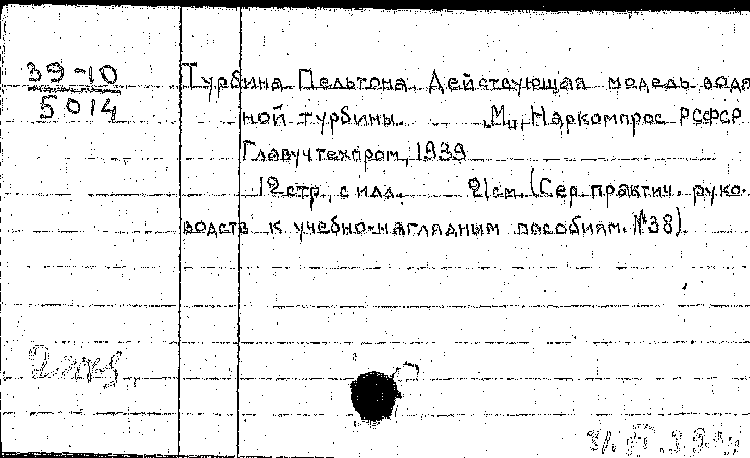 39-10
5014
Турбина Пельтона. Действующая модель водя
ной турбины. М., Наркомпрос РСФСР
Главучтехпром, 1939
12 стр. с илл. 21 см. (Сер. практич. руко-
водств к учебно-наглядным пособиям. №38).
2 экз